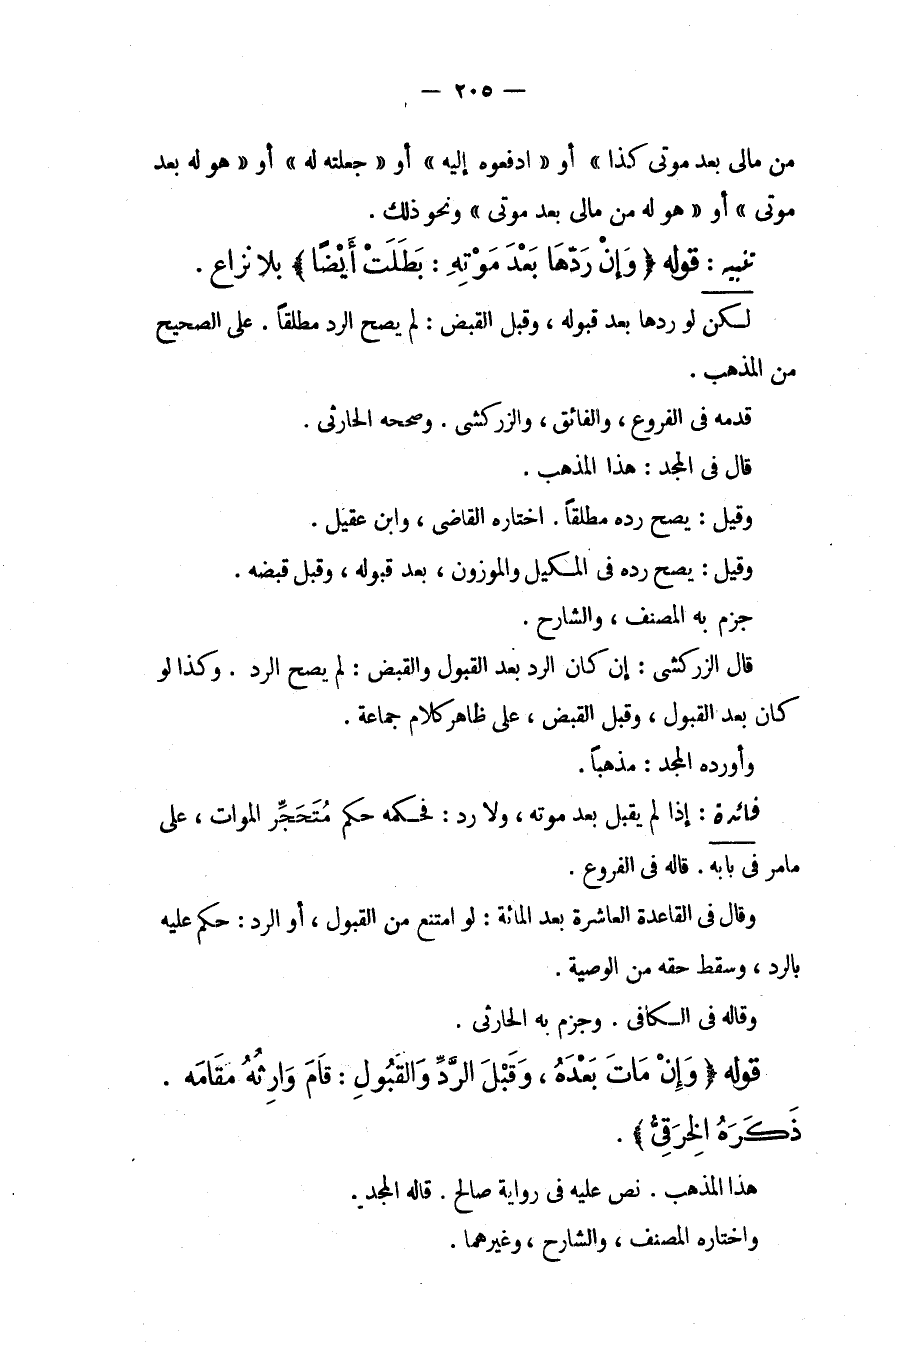 — ٢٠٥ —
من مالى بعد موتى كذا » أو « ادفعوه إليه » أو « جعلته له » أو « هو له بعد
موتى » أو « هو له من مالى بعد موتى » ونحو ذلك .
تنبيه : قوله ﴿ وَإِنْ رَدَّهَا بَعْدَ مَوْتِهِ : بَطَلَتْ أَيْضًا ﴾ بلا نزاع .
لـكن لو ردها بعد قبوله ، وقبل القبض : لم يصح الرد مطلقاً . على الصحيح
من المذهب .
قدمه فى الفروع ، والفائق ، والزركشى . وصححه الحارثى .
قال فى المجد : هذا المذهب .
وقيل : يصح رده مطلقاً . اختاره القاضى ، وابن عقيل .
وقيل : يصح رده فى المـكيل والموزون ، بعد قبوله ، وقبل قبضه .
جزم به المصنف ، والشارح .
قال الزركشى : إن كان الرد بعد القبول والقبض : لم يصح الرد . وكذا لو
كان بعد القبول ، وقبل القبض ، على ظاهر كلام جماعة .
وأورده المجد : مذهباً .
فائدة : إذا لم يقبل بعد موته ، ولا رد : فحـكمه حكم مُتَحَجِّر الموات ، على
مامر فى بابه . قاله فى الفروع .
وقال فى القاعدة العاشرة بعد المائة : لو امتنع من القبول ، أو الرد : حكم عليه
بالرد ، وسقط حقه من الوصية .
وقاله فى الـكافى . وجزم به الحارثى .
قوله ﴿ وَإِنْ مَاتَ بَعْدَهُ ، وَقَبْلَ الرَّدِّ وَالقَبُولِ : قَامَ وَارِثُهُ مَقَامَه .
ذَكَرَهُ الخِرَقِىُّ ﴾ .
هذا المذهب . نص عليه فى رواية صالح . قاله المجد .
واختاره المصنف ، والشارح ، وغيرهما .